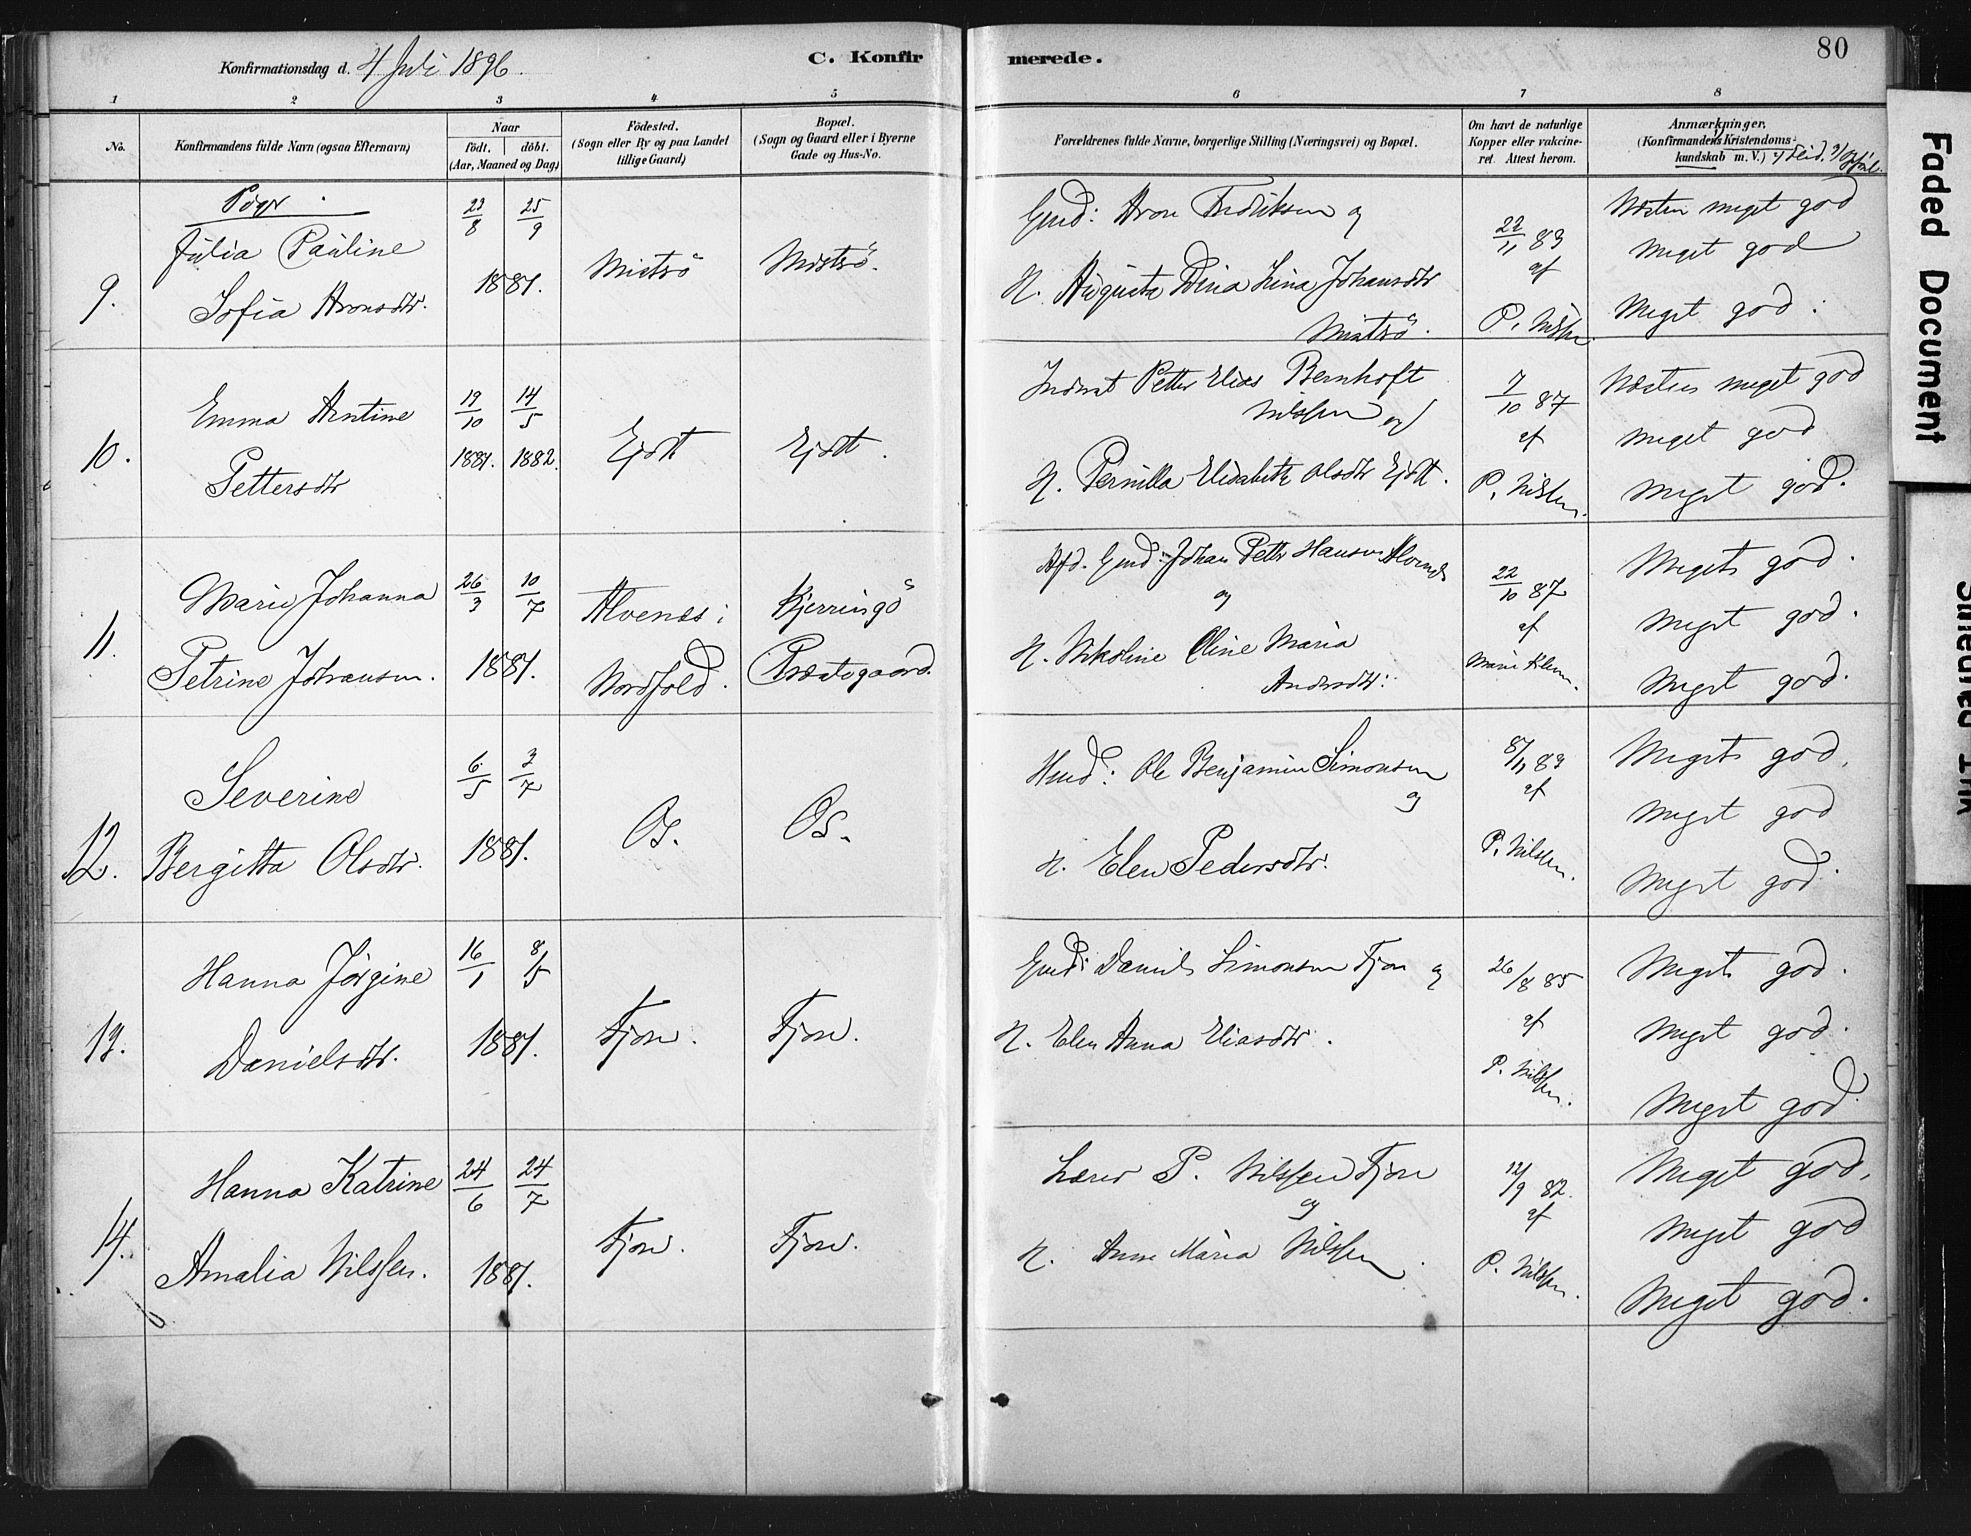 Konfirmationsdag d. 4 Juli 1896.
C. Konfirmerede.
80
1 2 3 4 5 6 7 8
No.
Konfirmandens fulde Navn (ogsaa Efternavn)
Naar
födt. döbt.
(Aar, Maaned og Dag)
Födested.
(Sogn eller By og paa Landet
tillige Gaard)
Bopæl.
(Sogn og Gaard eller i Byerne
Gade og Hus-No.
Forældrenes fulde Navne, borgerlige Stilling (Næringsvei) og Bopæl.
Om havt de naturlige
Kopper eller vakcine-
ret. Attest herom.
Anmærkninger.
(Konfirmandens Kristendoms-
kundskab m. V.) 2/ Flid.
9.
Piger.
Julia Pauline
Sofia Aronsdtr.
23/8 25/9
1881.
Mistsö
Mistsö.
Gmd: Aron Fredriksen og
H. Augusta Dina Lina Johansdtr
Mistsö.
22/11 83
af
P. Nilssen
Næsten meget god
Meget god
Meget god.
10.
Emma Arntine
Pettersdtr
19/10 14/5
1881. 1882.
Ejdt
Ejdt.
Inderst Petter Elias Bernhoft
Nilssen og
H. Pernilla Elisabeth Olsdtr Ejdt.
7/10 87
af
P. Nilssen.
Næsten meget god
Meget god
Meget god.
11.
Marie Johanna
Petrine Johansen.
26/3 10/7
1881.
Alvenes i
Nordfold.
Kjerringö
Præstegaard.
Afd. Gmd: Johan Petter Hansen Alvenes
og
H. Nikoline Oline Maria
Andersdtr:
22/10 87
af
Marie Klem.
Meget god.
Meget god.
Meget god.
12.
Severine
Bergitta Olsdtr.
6/5 3/7
1881.
Os.
Os.
Hmd: Ole Benjamin Simonsen
og
H. Elen Pedersdtr.
8/11 83
af
P. Nilssen.
Meget god.
Meget god
Meget god.
13.
Hanna Jörgine
Danielsdtr.
16/1 8/5
1881.
Fjøre.
Fjøre.
Gmd: Daniel Simonsen Fjøre og
H. Elen Anna Eliasdtr.
26/8 85
af
P. Nilssen.
Meget god.
Meget god.
Meget god.
14.
Hanna Katrine
Amalia Nilssen.
24/6 24/7
1881.
Fjøre.
Fjøre.
Lærer P. Nilssen Fjøre
og
H. Anne Maria Nilssen.
12/9 82.
af
P. Nilssen.
Meget god.
Meget god
Meget god.
Faded Document
Smeared Ink